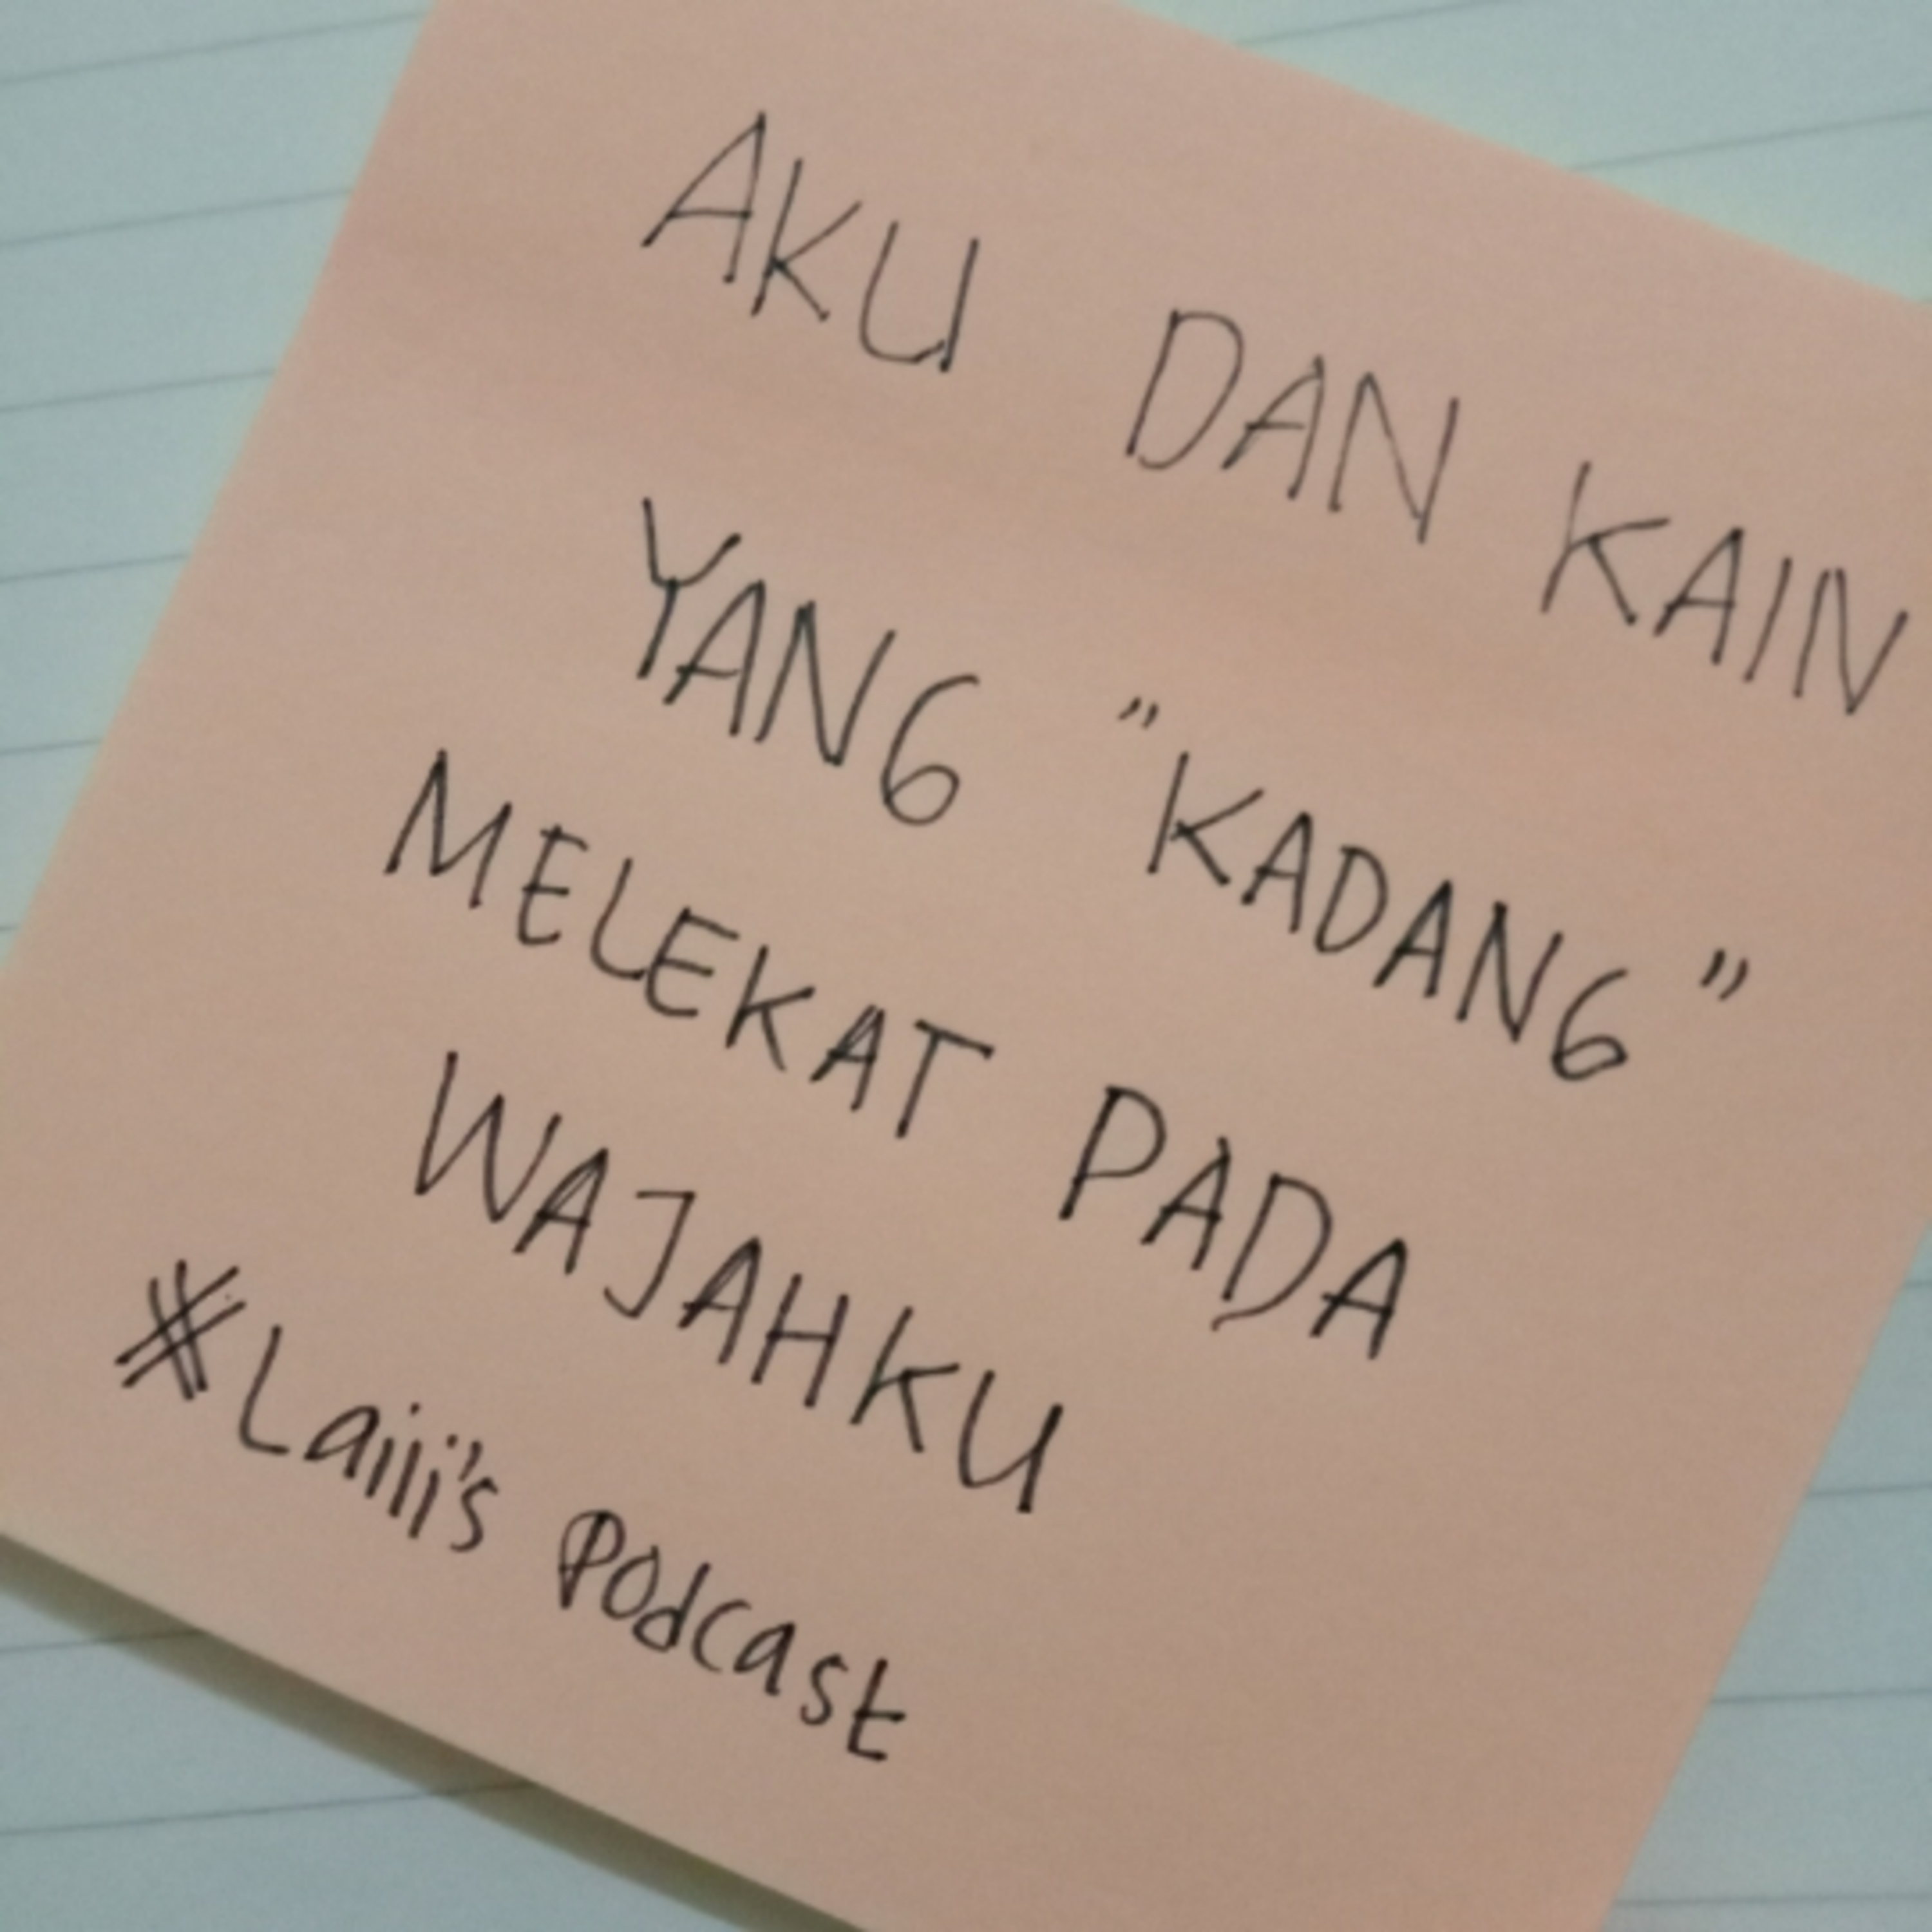 AKU DAN KAIN
YANG "KADANG"
MELEKAT PADA
WAJAHKU
#Laiii's Podcast